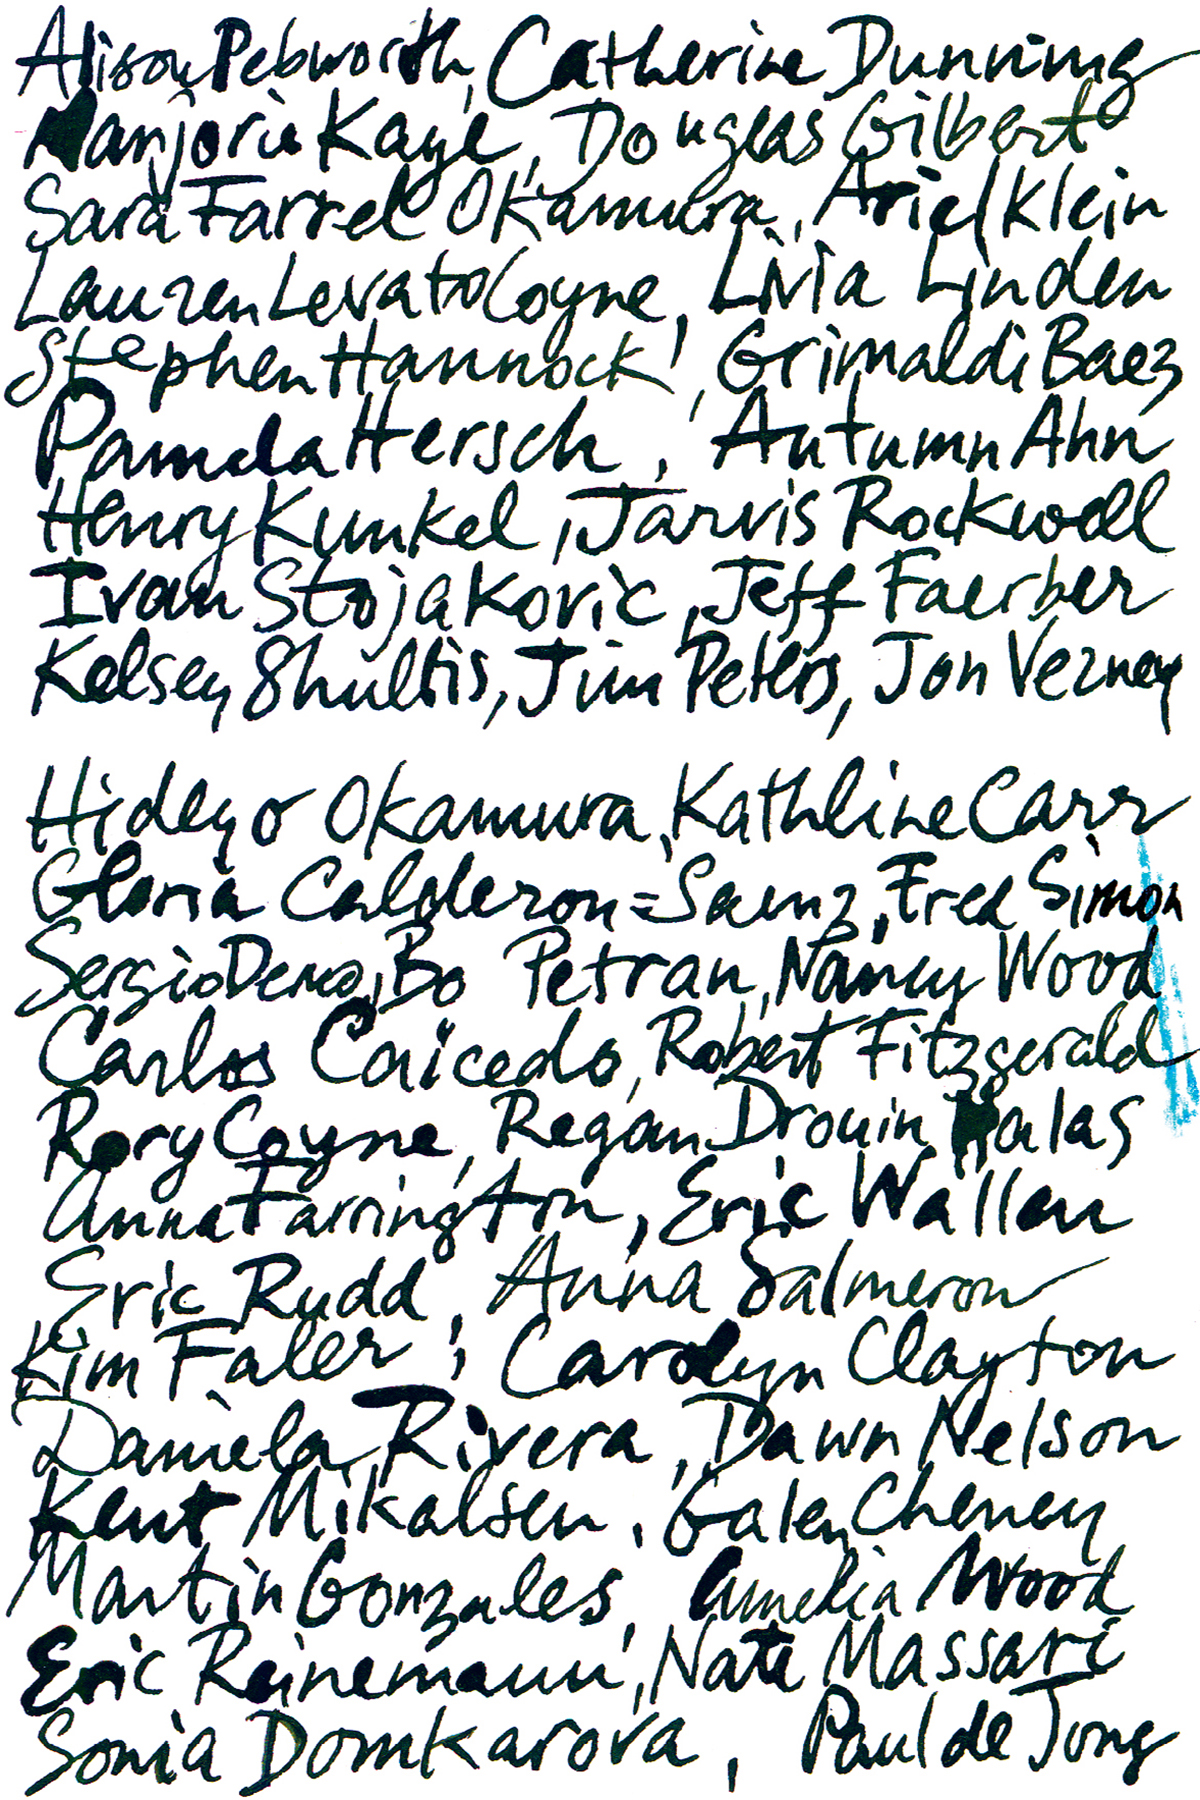 Alison Pebworth, Catherine Dunning
Marjorie Kaye, Douglas Gilbert
Sara Farrel Okamura, Ariel Klein
Lauren Levato Coyne, Livia Linden
Stephen Hannock, Grimaldi Baez
Pamela Hersch, Autumn Ahn
Henry Kunkel, Jarvis Rockwell
Ivan Stojakovic, Jeff Faerber
Kelsey Shultis, Jim Peters, Jon Verney
Hideyo Okamura, Kathline Carr
Gloria Calderon=Saenz, Fred Simon
Sergio Bo Petran, Nancy Wood
Carlos Caicedo, Robert Fitzgerald
Rory Coyne, Regan Drouin Halas
Anna Farrington, Eric Wallen
Eric Rudd, Anna Salmeron
Kim Faler, Carolyn Clayton
Daniela Rivera, Dawn Nelson
Kent Mikalsen, Galen Cheney
Martin Gonzales, Amelia Wood
Eric Reinemann, Nate Massari
Sonia Domkarova, Paul de Jong